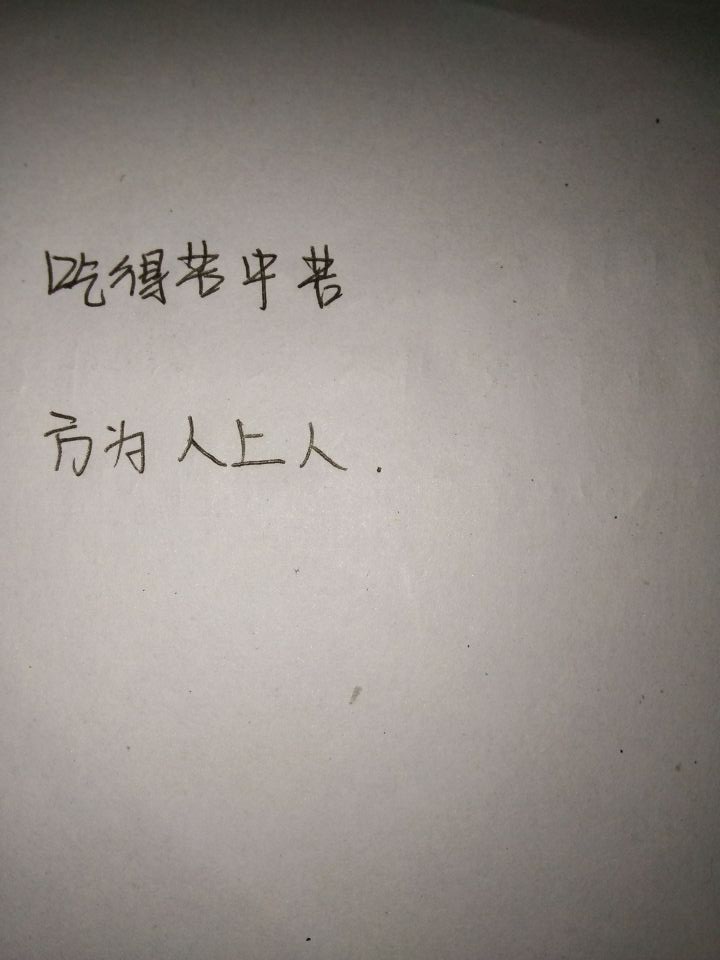 吃得苦中苦
方为人上人.